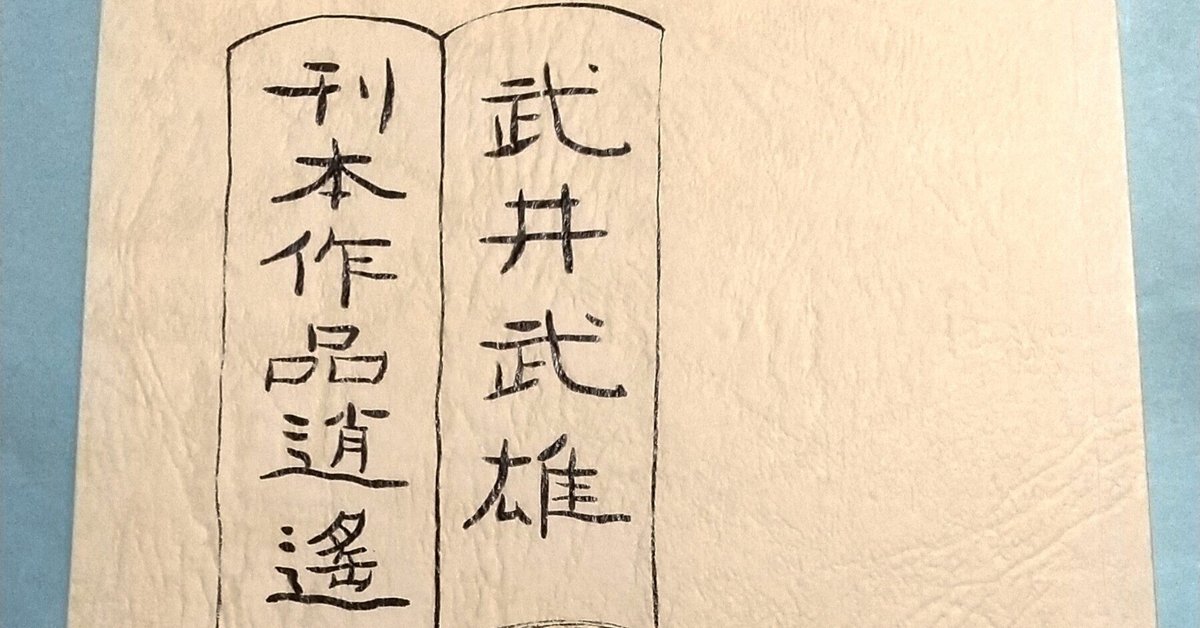 武井武雄
刊本作品逍遙